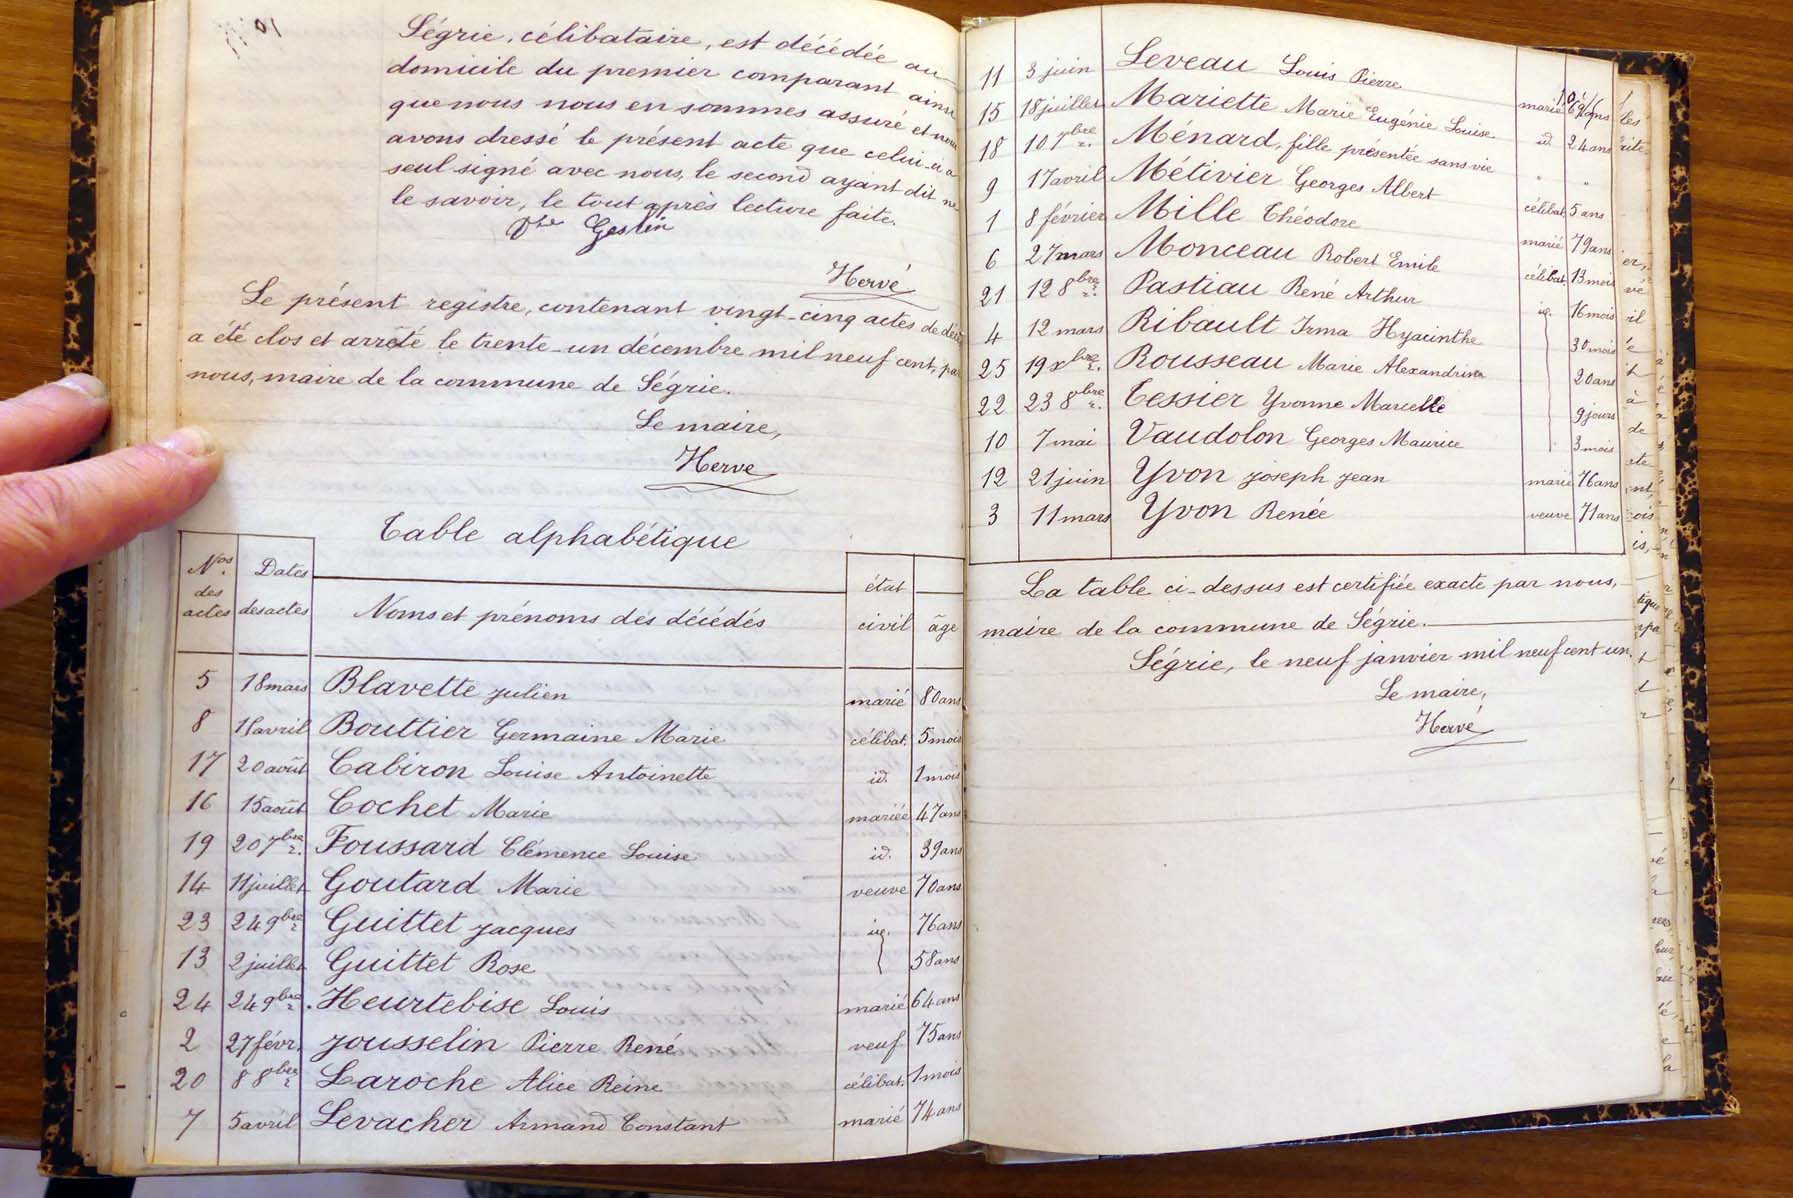 Ségrie, célibataire, est décédée au
domicile du premier comparant ainsi
que nous nous en sommes assuré et nous
avons dressé le présent acte que celui-ci a
seul signé avec nous, le second ayant dit ne
le savoir, le tout après lecture faite.
Gestin
Hervé
Le présent registre, contenant vingt-cinq actes de décès
a été clos et arrêté le trente-un décembre mil neuf cent, par
nous, maire de la commune de Ségrie.
Le maire,
Hervé
Table alphabétique
Nos des actes Dates des actes Noms et prénoms des décédés état civil âge
5 18 mars Blavette Julien marié 80 ans
8 11 avril Bouttier Germaine Marie célibat. 5 mois
17 20 août Cabiron Louise Antoinette id. 1 mois
16 15 août Cochet Marie mariée 47 ans
19 20 7bre Foussard Clémence Louise id. 39 ans
14 11 juillet Goutard Marie veuve 70 ans
23 24 9bre Guittet Jacques id. 76 ans
13 2 juillet Guittet Rose 58 ans
24 24 9bre Heurtebise Louis marié 64 ans
2 27 févr. Jousselin Pierre René veuf 75 ans
20 8 8bre Laroche Alice Reine célibat. 1 mois
7 5 avril Levacher Armand Constant marié 74 ans
11 3 juin Leveau Louis Pierre marié ans
15 18 juillet Mariette Marie Eugénie Louise id. 24 ans
18 10 7bre Ménard, fille présentée sans vie " "
9 17 avril Métivier Georges Albert célibat. 5 ans
1 8 février Mille Théodore marié 79 ans
6 27 mars Monceau Robert Emile célibat. 13 mois
21 12 8bre Pastiau René Arthur id. 16 mois
4 12 mars Ribault Irma Hyacinthe 30 mois
25 19 xbre Rousseau Marie Alexandrine 20 ans
22 23 8bre Tessier Yvonne Marcelle 9 jours
10 7 mai Vaudolon Georges Maurice 3 mois
12 21 juin Yvon Joseph Jean marié 76 ans
3 11 mars Yvon Renée veuve 71 ans
La table ci-dessus est certifiée exacte par nous,
maire de la commune de Ségrie.
Ségrie, le neuf janvier mil neuf cent un.
Le maire,
Hervé